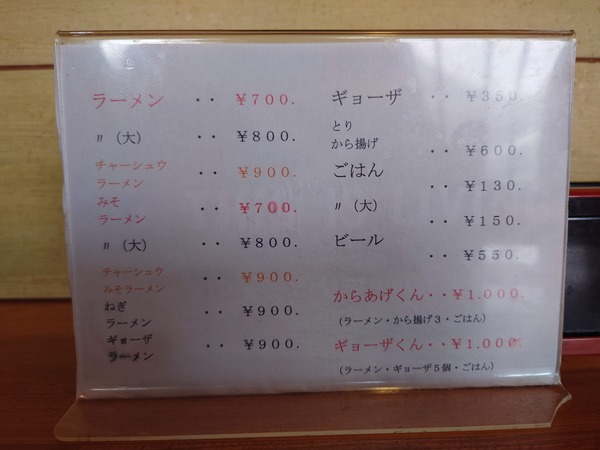 ラーメン ‥ ￥７００．
〃（大） ‥ ￥８００．
チャーシュウ
ラーメン ‥ ￥９００．
みそ
ラーメン ‥ ￥７００．
〃（大） ‥ ￥８００．
チャーシュウ
みそラーメン ‥ ￥９００．
ねぎ
ラーメン ‥ ￥９００．
ギョーザ
ラーメン ‥ ￥９００．
ギョーザ ‥ ￥３５０．
とり
から揚げ ‥ ￥６００．
ごはん ‥ ￥１３０．
〃（大） ‥ ￥１５０．
ビール ‥ ￥５５０．
からあげくん‥￥１.０００．
（ラーメン・から揚げ３・ごはん）
ギョーザくん‥￥１.０００．
（ラーメン・ギョーザ５個・ごはん）